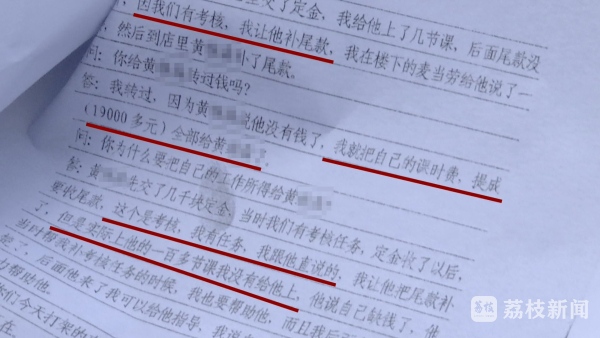 交了定金，我给他上了几节课，后面尾款没
，因我们有考核，我让他补尾款，我在楼下的麦当劳给他说了一
，然后到店里黄 补了尾款。
问：你给黄 转过钱吗？
答：我转过，因为黄 说他没有钱了，我就把自己的课时费，提成
（19000多元）全部给黄 。
问：你为什么要把自己的工作所得给黄
答：黄 先交了几千块定金，当时我们有考核任务，定金长了以后，
要收尾款，这个是考核，我有任务，我跟他直说的，我让他把尾款补
了，但是实际上他的一百多节课我没有给他上，他说自己缺钱了，他
当时帮我补考核任务的时候，我也要帮助他，而且我后
起了，后面他来了我可以给他指导，我说
力帮助他。
们今天打架的
在
荔枝新闻